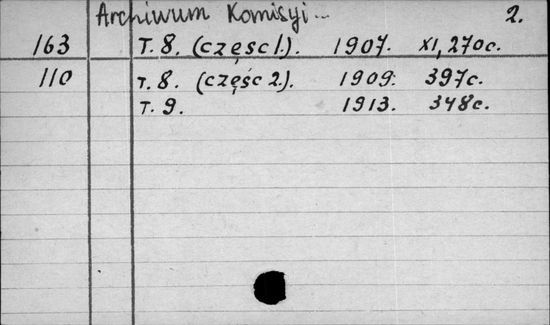 Archiwum Komisyi... 2.
163 T. 8. (częsc 1.). 1907. XI, 270c.
110 T. 8. (część 2.). 1909. 397c.
T. 9. 1913. 348c.